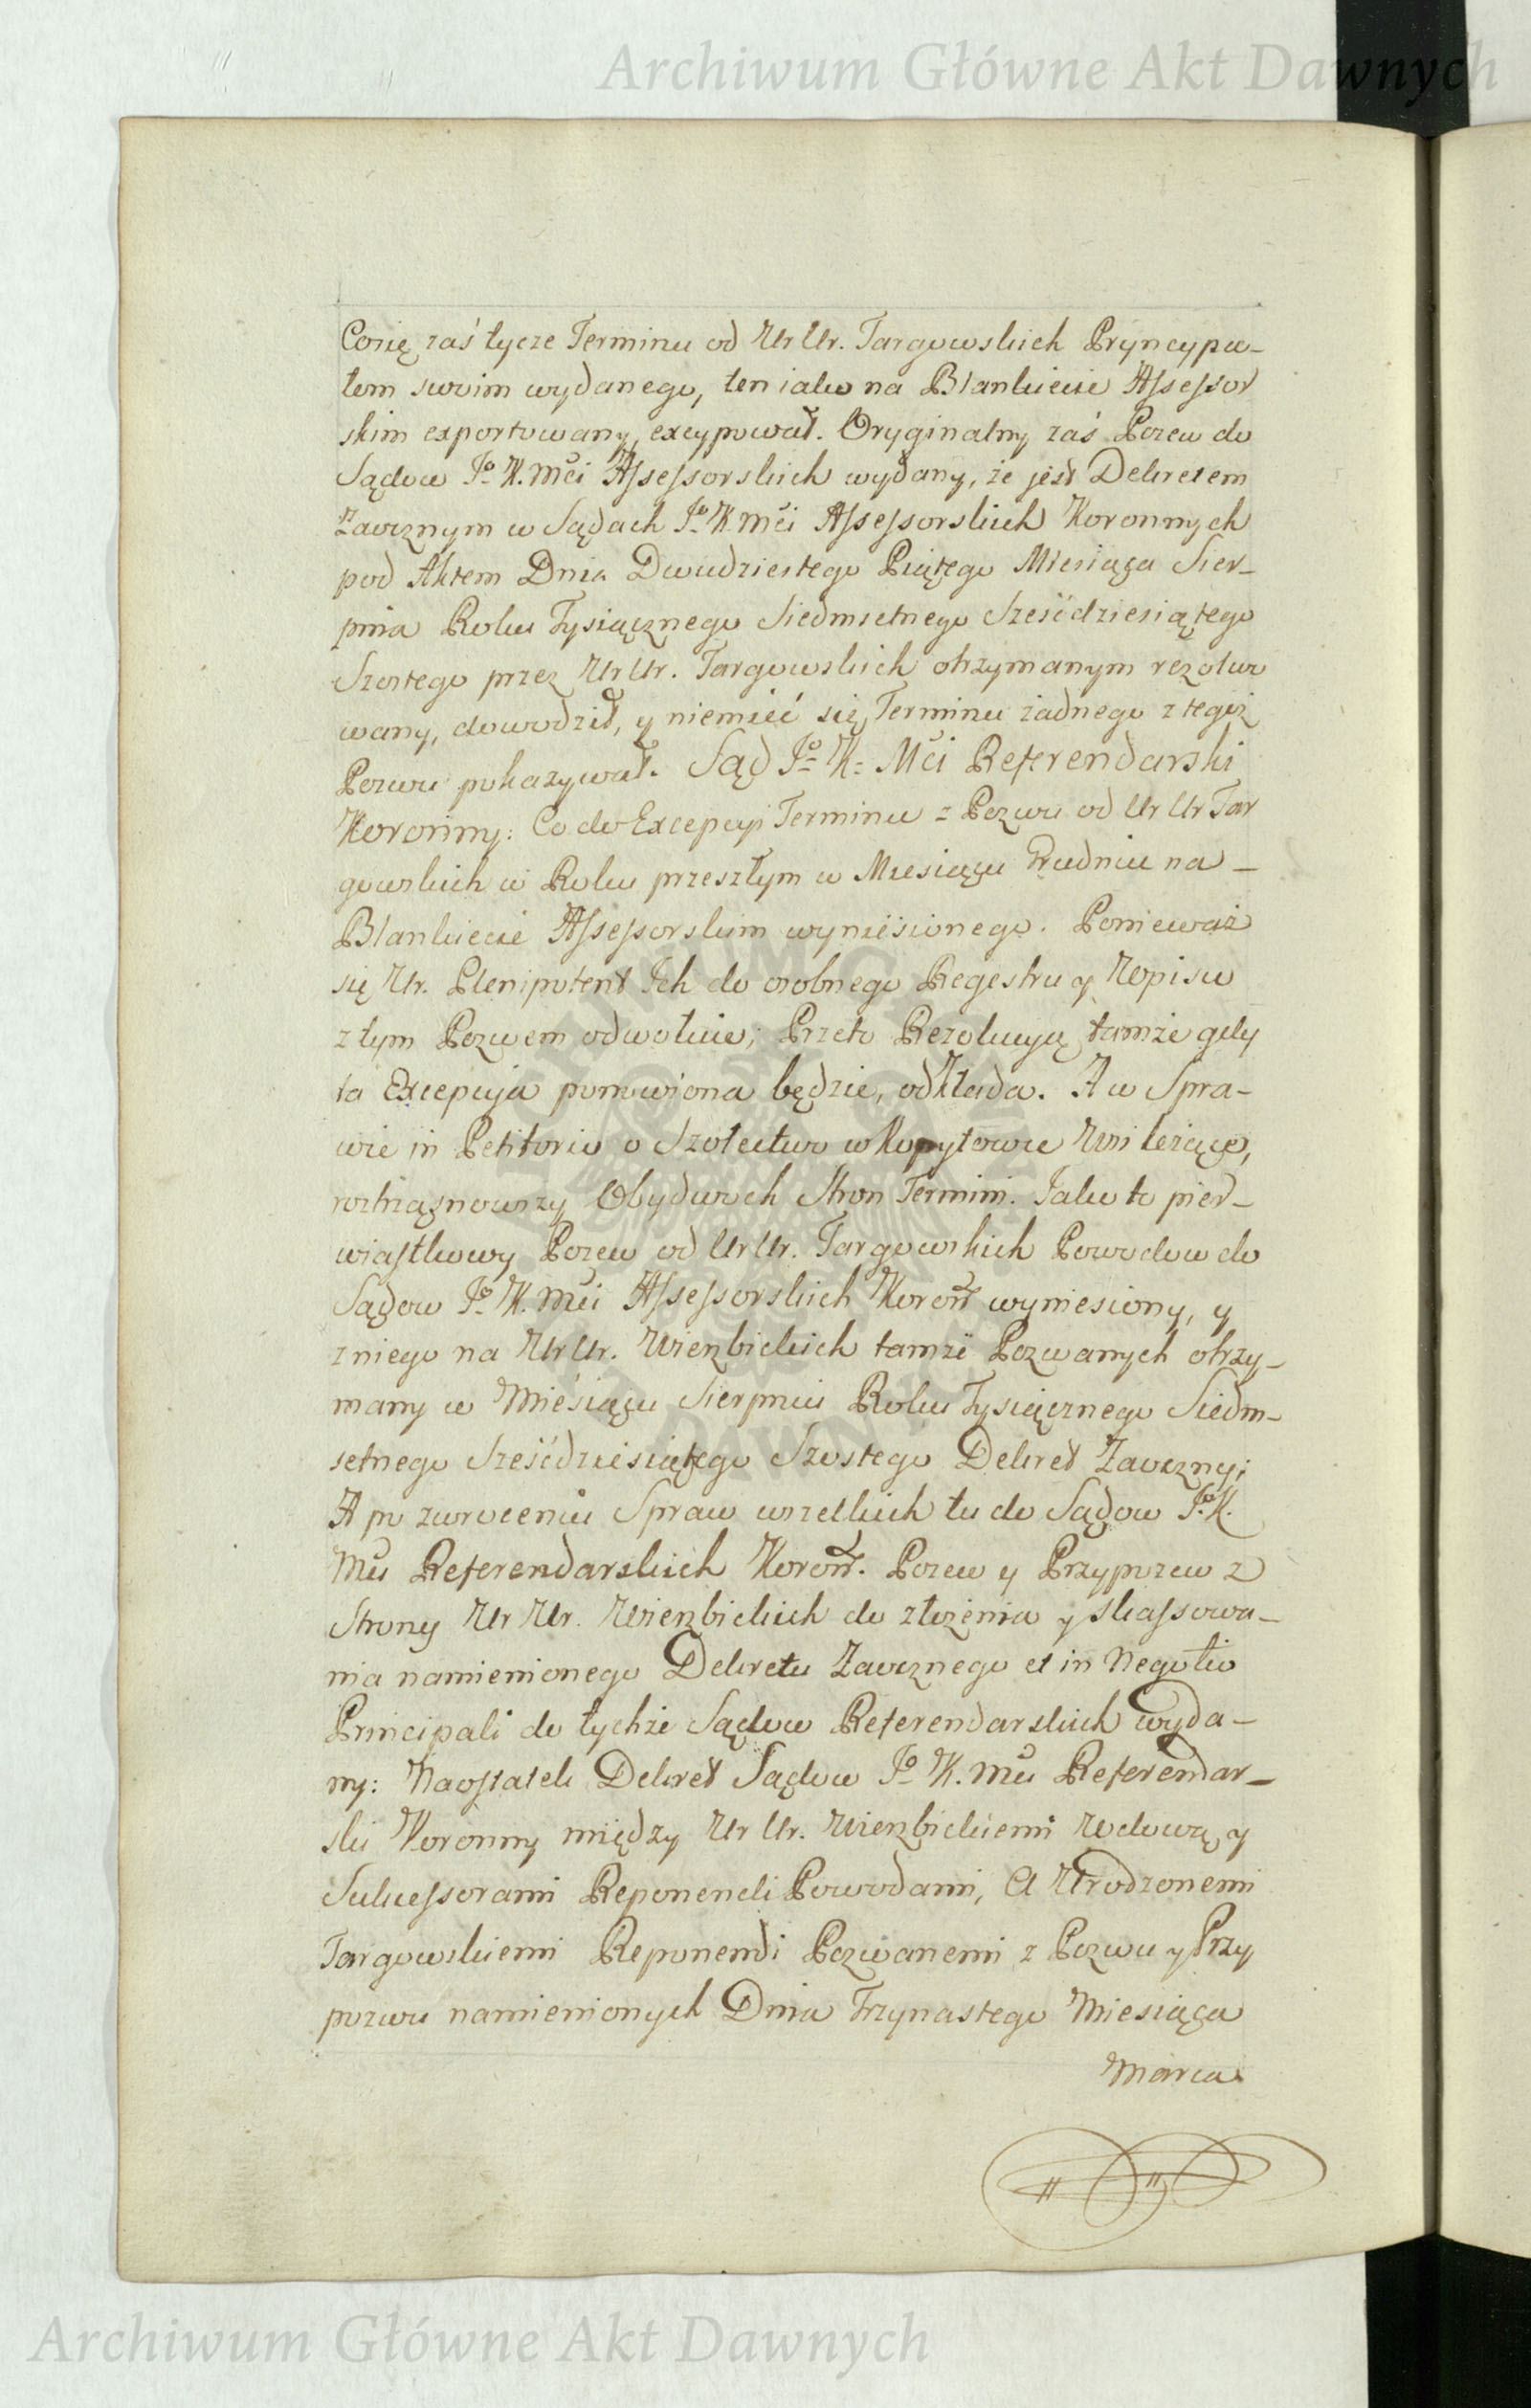 Archiwum Główne Akt Dawnych
Cosię zaś tycze Terminu od Ur Ur. Targowskich Pryncypa-
łom swoim wydanego, ten iako na Blankiecie Assessor
skim exportowany, excypował. Oryginalny zaś Pozew do
Sądow Jo K. Mći Assessorskich wydany, że jest Dekretem
Zaocznym w Sądach Jo K Mći Assessorskich Koronnych
pod Aktem Dnia Dwudziestego Piątego Miesiąca Sier-
pnia Roku Tysiącznego Siedmsetnego Sześćdziesiątego
Szostego przez Ur Ur. Targowskich otrzymanym rezolwo
wany, dowodził, y niemieć się Terminu żadnego z tegoż
Pozwu pokazywał. Sąd Jo K: Mći Referendarski
Koronny: Co do Excepcyi Terminu z Pozwu od Ur Ur Tar
gowskich w Roku przeszłym w Miesiącu Grudniu na -
Blankiecie Assessorskim wyniesionego. Ponieważ
się Ur. Plenipotent Ich do osobnego Regestru y Wpisu
z tym Pozwem odwołuie; Przeto Rezolucyą tamże gdy
ta Excepcyja ponowiona będzie, odkłada. A w Spra-
wie in Petitorio o Szołectwo w Kopytowie Wsi leżące,
roztrząsnowszy Obydwoch Stron Termini. Jako to pier-
wiastkowy Pozew od Ur Ur. Targowskich Powodow do
Sądow Jo K. Mći Assessorskich Koroñ wyniesiony, y
z niego na Ur Ur. Wierzbickich tamże Pozwanych otrzy-
many w Miesiącu Sierpniu Roku Tysiącznego Siedm-
setnego Sześćdziesiątego Szostego Dekret Zaoczny;
A po zwroceniu Spraw wszelkich tu do Sądow Jo K.
Mći Referendarskich Koroñ. Pozew y Przypozew z
Strony Ur Ur. Wierzbickich do złożenia y skassowa-
nia namienionego Dekretu Zaocznego et in Negotio
Principali do tychże Sądow Referendarskich wyda-
ny: Naostatek Dekret Sądow Jo K. Mći Referendar-
ski Koronny między Ur Ur. Wierzbickiemi Wdową y
Sukcessorami Reponendi Powodami, A Urodzonemi
Targowskiemi Reponendi Pozwanemi z Pozwu y Przy
pozwu namienionych Dnia Trzynastego Miesiąca
Marca
Archiwum Główne Akt Dawnych